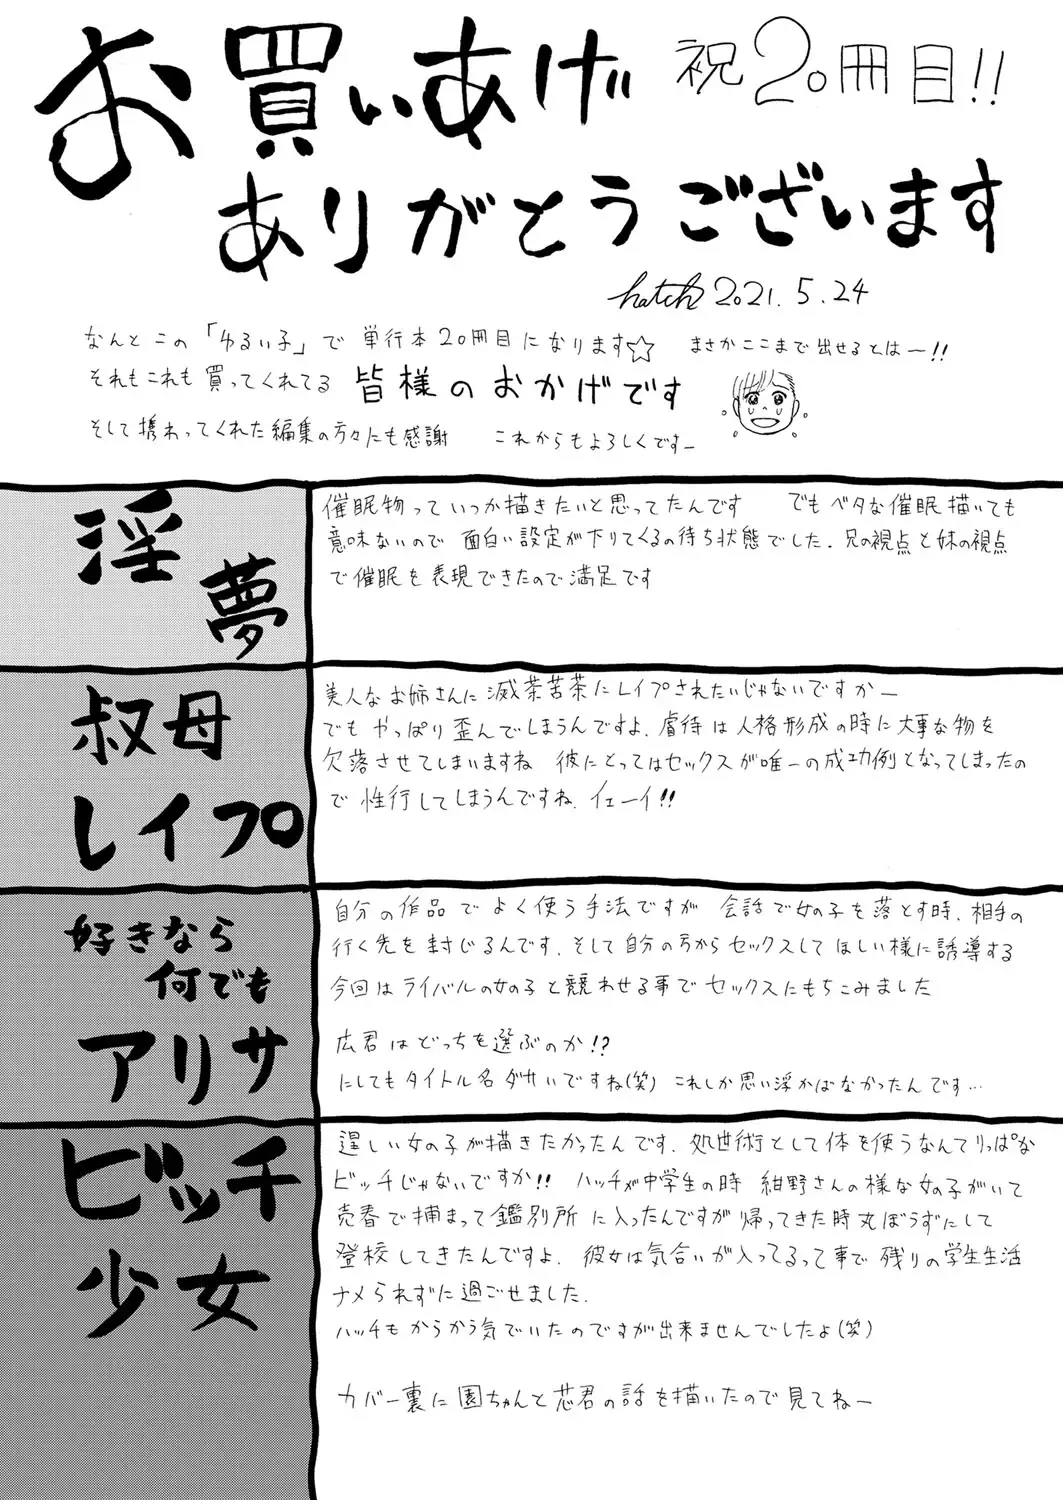 お買いあげ
祝20冊目!!
ありがとうございます
hatch 2021.5.24
なんとこの「ゆるい子」で 単行本20冊目になります☆ まさかここまで出せるとはー!!
それもこれも買ってくれてる 皆様のおかげです
そして携わってくれた編集の方々にも感謝 これからもよろしくですー
淫夢
催眠物っていつか描きたいと思ってたんです でもベタな催眠描いても
意味ないので 面白い設定が下りてくるの待ち状態でした. 兄の視点と妹の視点
で催眠を表現できたので満足です
叔母
レイプ
美人なお姉さんに滅茶苦茶にレイプされたいじゃないですかー
でも やっぱり歪んでしまうんですよ. 虐待は人格形成の時に大事な物を
欠落させてしまいますね 彼にとってはセックスが唯一の成功例となってしまったの
で 性行してしまうんですね. イェーイ!!
好きなら
何でも
アリサ
自分の作品で よく使う手法ですが 会話で女の子を落とす時、相手の
行く先を封じるんです. そして自分の方からセックスしてほしい様に誘導する
今回はライバルの女の子と競わせる事でセックスにもちこみました
広君はどっちを選ぶのか!?
にしてもタイトル名ダサいですね(笑) これしか思い浮かばなかったんです…
ビッチ
少女
逞しい女の子が描きたかったんです. 処世術として体を使うなんてりっぱな
ビッチじゃないですか!! ハッチが中学生の時 紺野さんの様な女の子がいて
売春で捕まって鑑別所に入ったんですが帰ってきた時丸ぼうずにして
登校してきたんですよ. 彼女は気合いが入ってるって事で残りの学生生活
ナメられずに過ごせました.
ハッチもからかう気でいたのですが出来ませんでしたよ(笑)
カバー裏に園ちゃんと芯君の話を描いたので見てねー